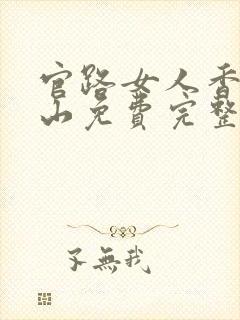 官路女人香
山免费完整
子無我